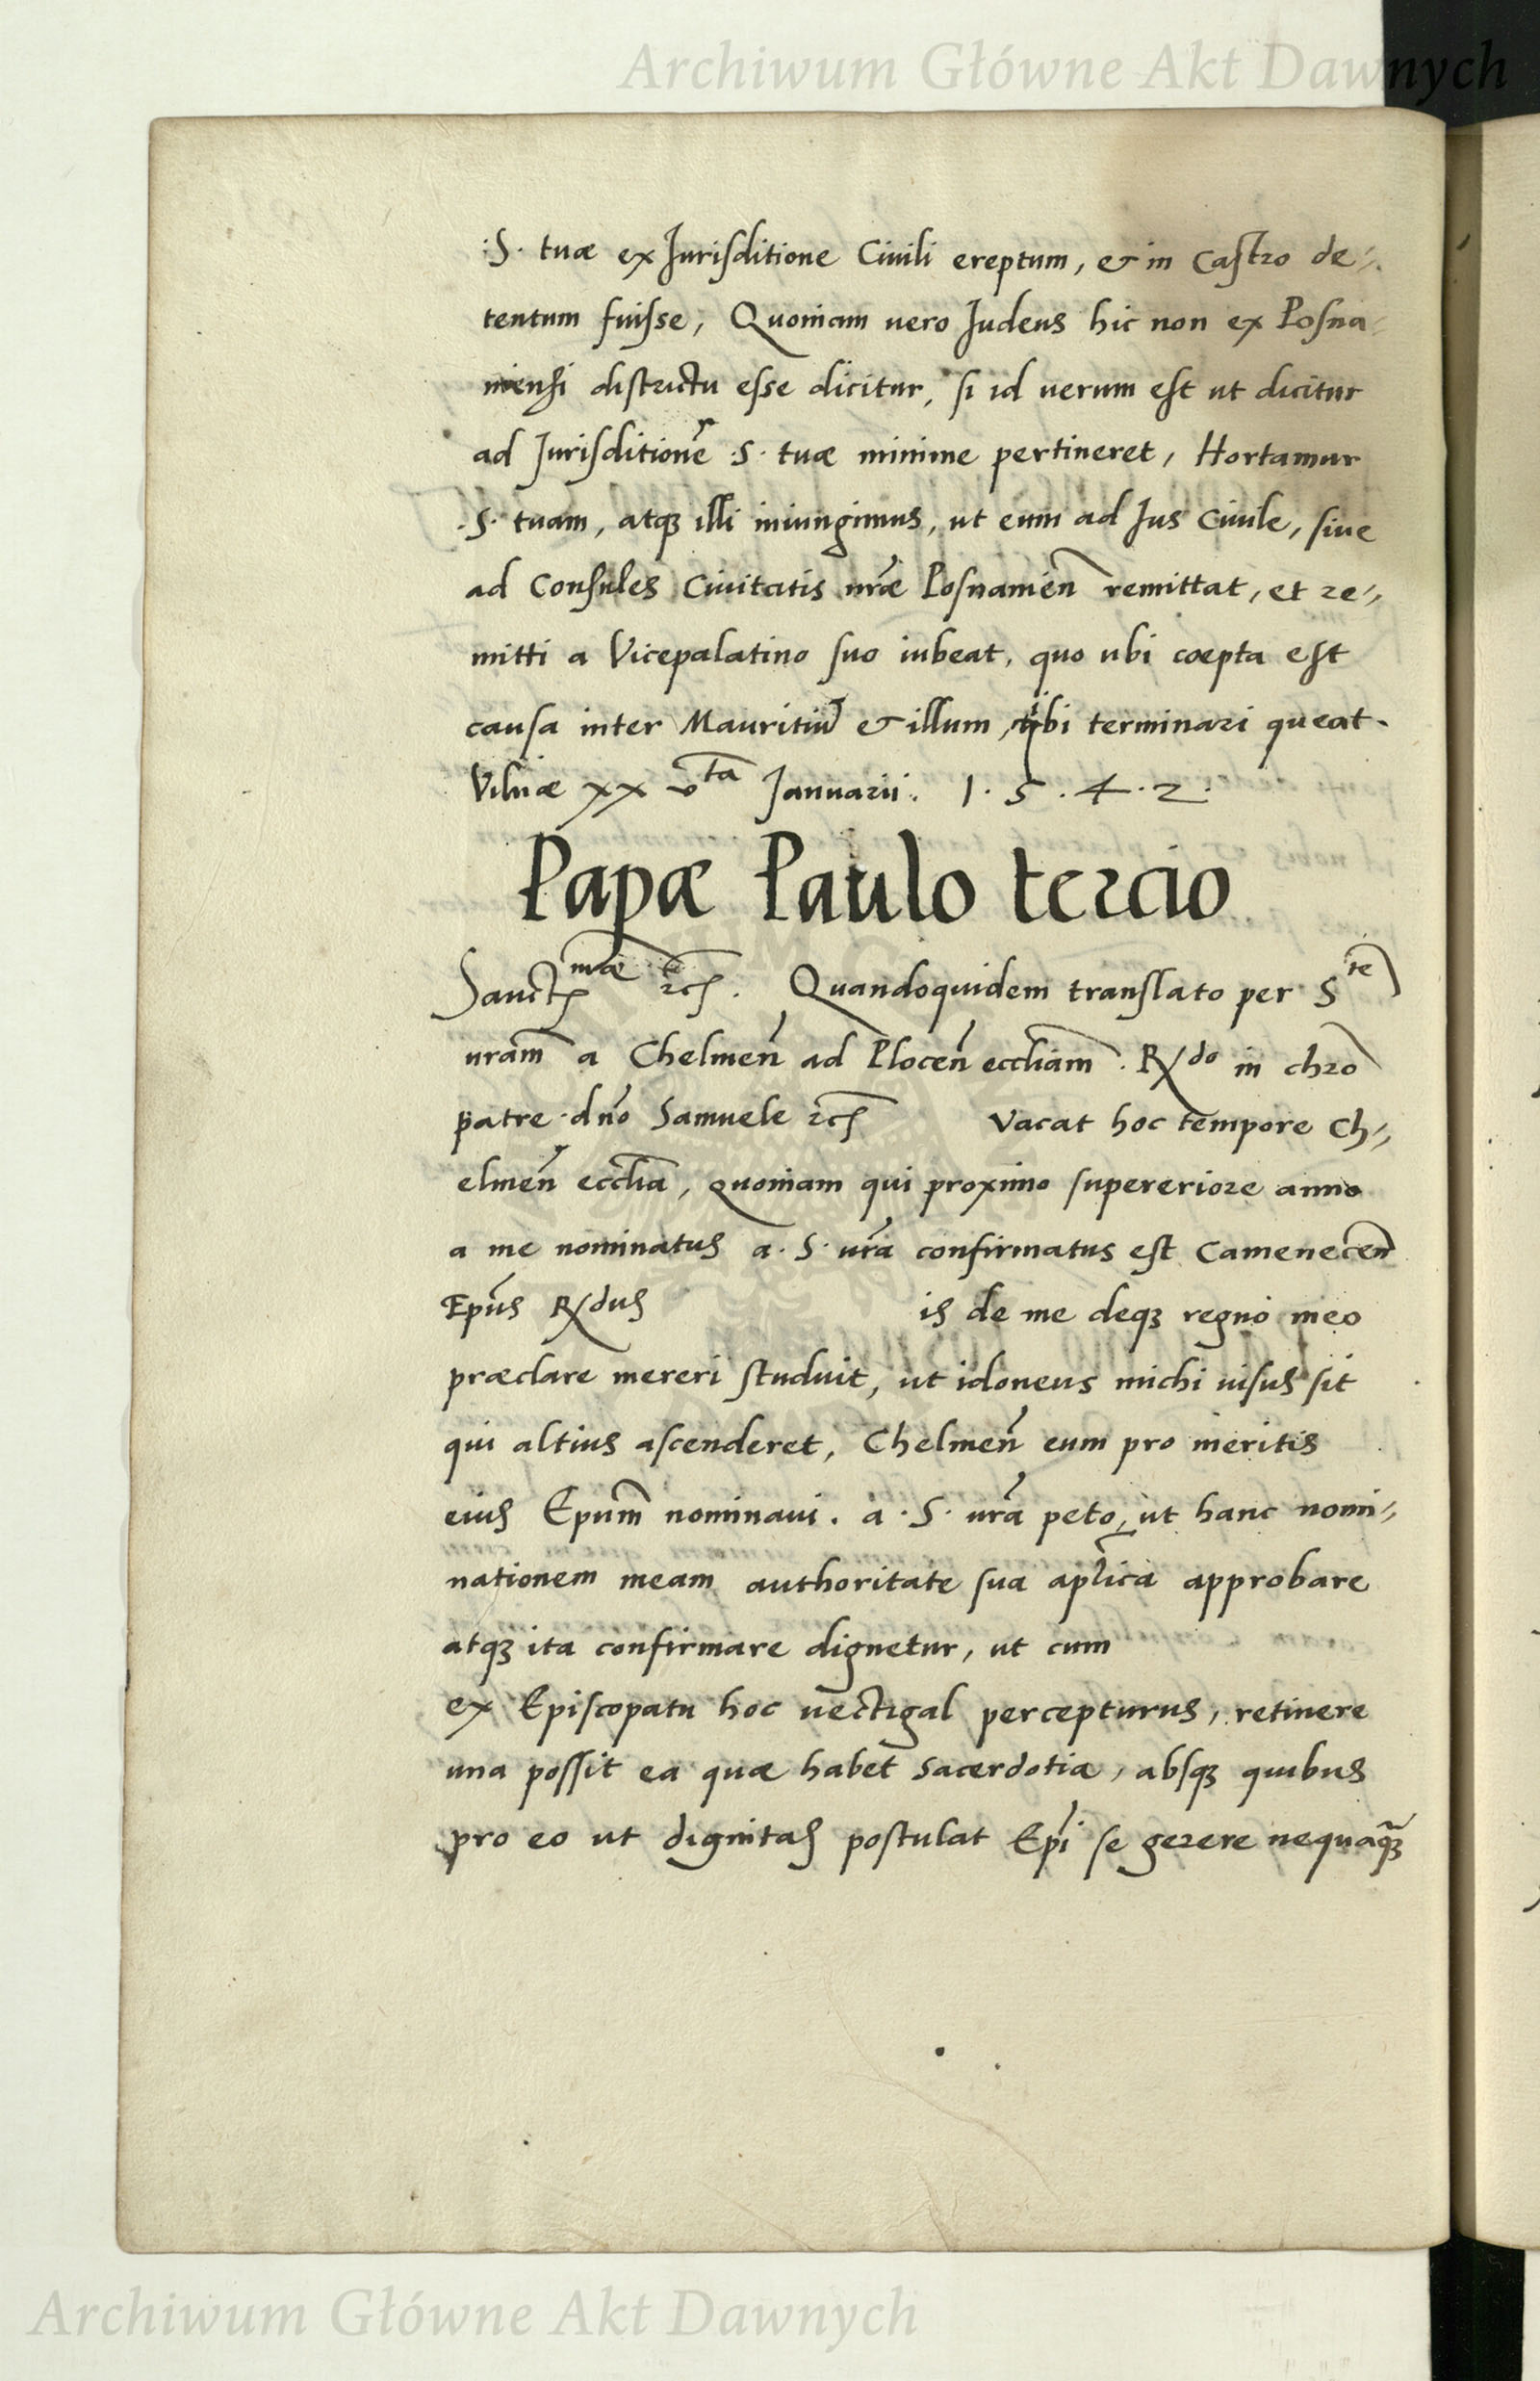 Archiwum Główne Akt Dawnych
·S· tuæ ex Jurisditione Ciuili ereptum, & in Castro de-
tentum fuisse, Quoniam uero Judeus hic non ex Posna-
niensi districtu esse dicitur, si id uerum est ut dicitur
ad Jurisditionẽ ·S· tuæ minime pertineret, Hortamur
·S· tuam, atqꝫ illi iniungimus, ut eum ad Jus Ciuile, siue
ad Consules Ciuitatis nr̃æ Posnamieñ remittat, et re-
mitti a Vicepalatino suo iubeat, quo ubi coepta est
causa inter Mauritiũ & illum, ibi terminari queat.
Vilnæ xx vta Januarii. 1·5·4·2·
Papæ Paulo tercio
Sanctmæ etc. Quandoquidem translato per Ste
uram̃ a Chelmeñ ad Ploceñ eccliam̃. Rdo in chro
patre dño Samuele etc Vacat hoc tempore Ch-
elmeñ ecclia, Quoniam qui proximo supereriore anno
a me nominatus a ·S· ur̃a confirmatus est Cameneceñ
Ep̃us Rdus is de me deqꝫ regno meo
præclare mereri studuit, ut idoneus michi uisus sit
qui altius ascenderet, Chelmeñ eum pro meritis
eius Epum̃ nominaui. a ·S· ur̃a peto, ut hanc nomi-
nationem meam authoritate sua aplica approbare
atqꝫ ita confirmare dignetur, ut cum
ex Episcopatu hoc uectigal percepturus, retinere
una possit ea quæ habet Sacerdotia, absqꝫ quibus
pro eo ut dignitas postulat Epi se gerere nequaqꝫ
Archiwum Główne Akt Dawnych